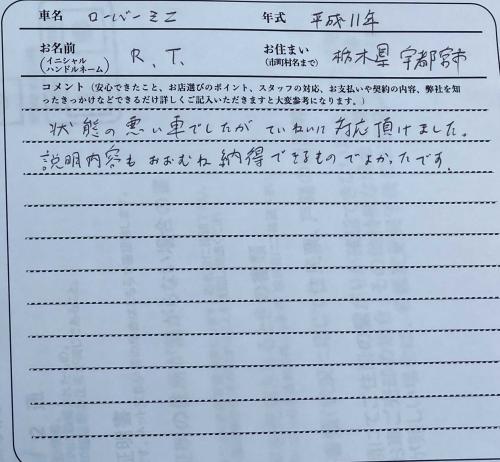 車名 ローバーミニ 年式 平成11年
お名前 (イニシャル ハンドルネーム) R.T. お住まい (市町村名まで) 栃木県宇都宮市
コメント（安心できたこと、お店選びのポイント、スタッフの対応、お支払いや契約の内容、弊社を知
ったきっかけなどできるだけ詳しくご記入いただきますと大変参考になります。）
状態の悪い車でしたがていねいに対応頂けました。
説明内容もおおむね納得できるものでよかったです。